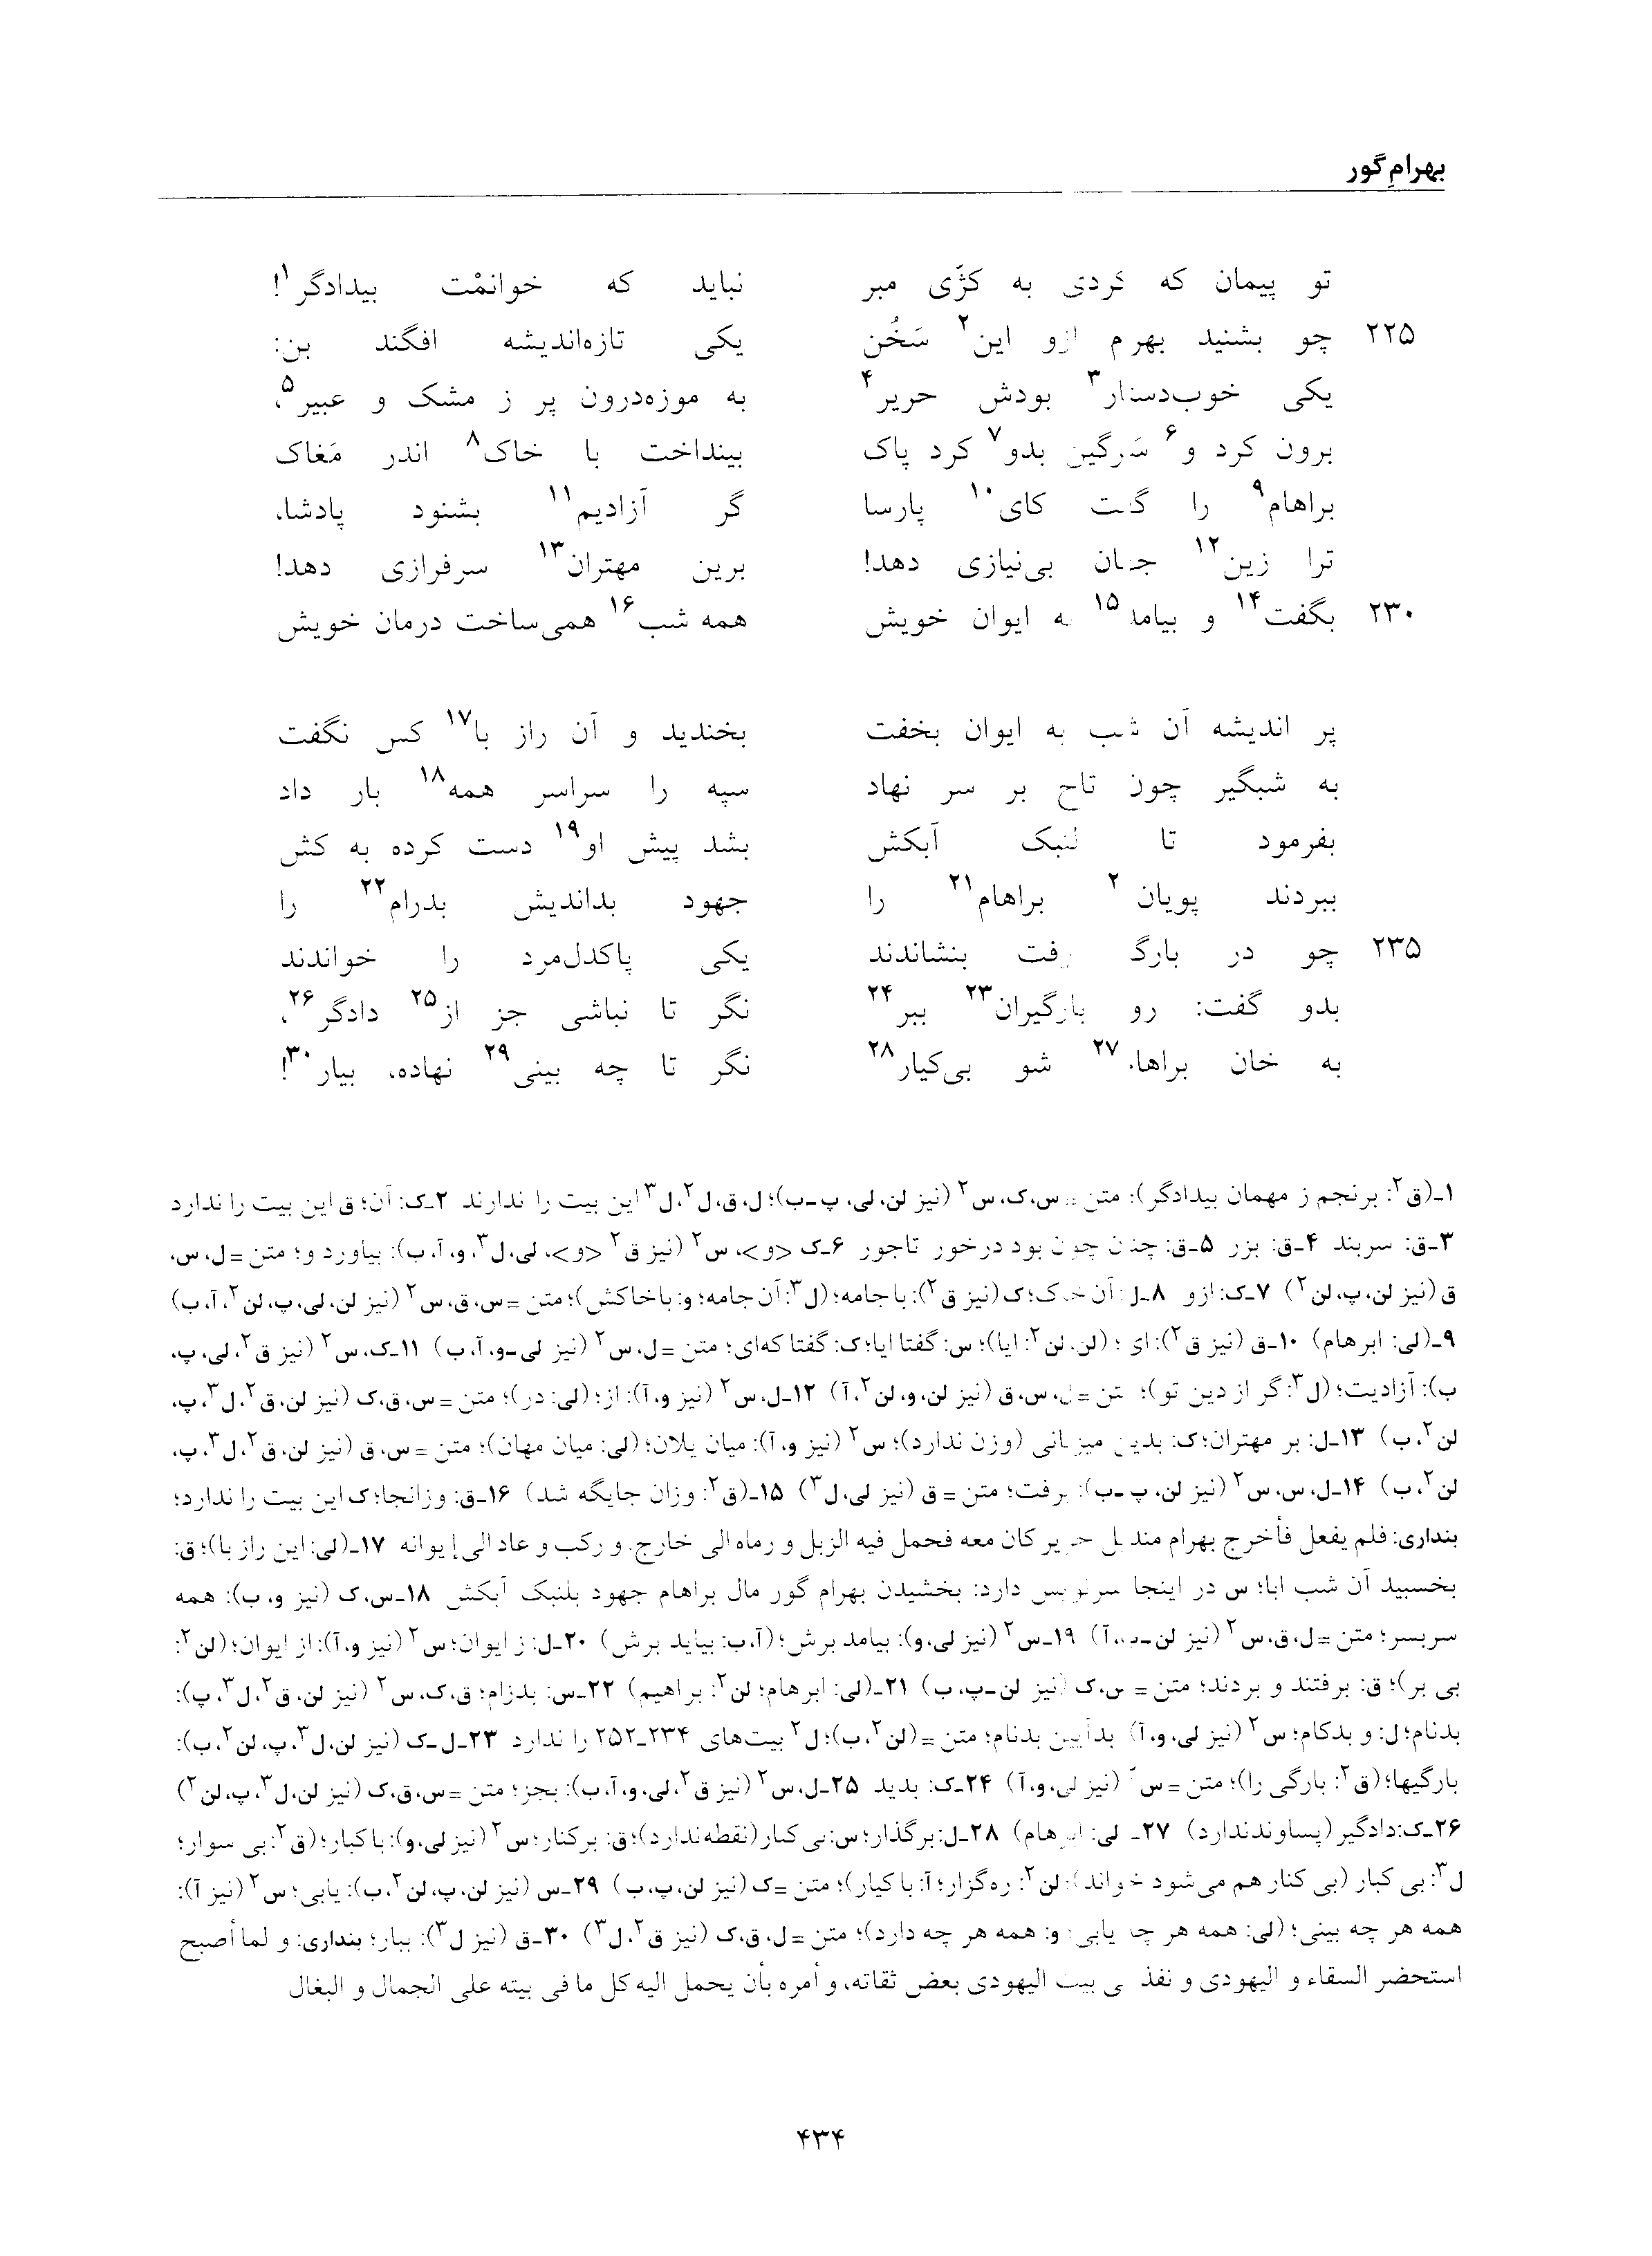 بهرامِ گور
تو پیمان که کردی به کژّی مبر نباید که خوانمْت بیدادگر۱!
۲۲۵ چو بشنید بهرام ازو این۲ سَخُن یکی تازه‌اندیشه افگند بن:
یکی خوب‌دستار۳ بودش حریر۴ به موزه‌درون پر ز مشک و عبیر۵،
برون کرد و۶ سَرگین بدو۷ کرد پاک بینداخت با خاک۸ اندر مَغاک
براهام۹ را گفت کای۱۰ پارسا گر آزادیم۱۱ بشنود پادشا،
ترا زین۱۲ جهان بی‌نیازی دهد! برین مهتران۱۳ سرفرازی دهد!
۲۳۰ بگفت۱۴ و بیامد۱۵ به ایوان خویش همه شب۱۶ همی‌ساخت درمان خویش
پر اندیشه آن شب به ایوان بخفت بخندید و آن راز با۱۷ کس نگفت
به شبگیر چون تاج بر سر نهاد سپه را سراسر همه۱۸ بار داد
بفرمود تا لنبک آبکش بشد پیش او۱۹ دست کرده به کش
ببردند پویان۲ براهام۲۱ را جهود بداندیش بدرام۲۲ را
۲۳۵ چو در بارگه رفت بنشاندند یکی پاکدل‌مرد را خواندند
بدو گفت: رو بارگیران۲۳ ببر۲۴ نگر تا نباشی جز از۲۵ دادگر۲۶،
به خان براهام۲۷ شو بی‌کیار۲۸ نگر تا چه بینی۲۹ نهاده، بیار۳۰!
۱ـ(ق۲: برنجم ز مهمان بیدادگر)؛ متن = س،ک،س۲ (نیز لن،لی، پ‌ـ‌ب)؛ ل،ق،ل۲،ل۳ این بیت را ندارند ۲ـک: آن؛ ق این بیت را ندارد
۳ـق: سربند ۴ـق: بزر ۵ـق: چنان چون بود درخور تاجور ۶ـک <و>، س۲ (نیز ق۲ <و>، لی،ل۳، و، آ، ب): بیاورد و؛ متن = ل، س،
ق (نیز لن، پ، لن۲) ۷ـک: ازو ۸ـل: آن خاک؛ ک (نیز ق۲): با جامه؛ (ل۳: آن جامه؛ و: با خاکش)؛ متن = س، ق، س۲ (نیز لن، لی، پ، لن۲، آ، ب)
۹ـ(لی: ابرهام) ۱۰ـق (نیز ق۲): ای؛ (لن، لن۲: ایا)؛ س: گفتا ایا؛ ک: گفتا که‌ای؛ متن = ل، س۲ (نیز لی‌ـ‌و، آ، ب) ۱۱ـک، س۲ (نیز ق۲، لی، پ،
ب): آزادیت؛ (ل۳: گر از دین تو)؛ متن = ل، س، ق (نیز لن، و، لن۲، آ) ۱۲ـل، س۲ (نیز و، آ): از؛ (لی: در)؛ متن = س، ق، ک (نیز لن، ق۲، ل۳، پ،
لن۲، ب) ۱۳ـل: بر مهتران؛ ک: بدین میزبانی (وزن ندارد)؛ س۲ (نیز و، آ): میان یلان؛ (لی: میان مهان)؛ متن = س، ق (نیز لن، ق۲، ل۳، پ،
لن۲، ب) ۱۴ـل، س، س۲ (نیز لن، پ‌ـ‌ب): برفت؛ متن = ق (نیز لی، ل۳) ۱۵ـ(ق۲: وزان جایگه شد) ۱۶ـق: وزانجا؛ ک این بیت را ندارد؛
بنداری: فلم یفعل فأخرج بهرام مندیل حریر کان معه فحمل فیه الزبل و رماه الی خارج. و رکب و عاد الی إیوانه ۱۷ـ(لی: این راز با)؛ ق:
بخسبید آن شب ابا؛ س در اینجا سرنویس دارد: بخشیدن بهرام گور مال براهام جهود بلنبک آبکش ۱۸ـس، ک (نیز و، ب): همه
سربسر؛ متن = ل، ق، س۲ (نیز لن‌ـ آ) ۱۹ـس۲ (نیز لی، و): بیامد برش؛ (آ، ب: بیاید برش) ۲۰ـل: ز ایوان؛ س۲ (نیز و، آ): از ایوان؛ (لن۲:
بی بر)؛ ق: برفتند و بردند؛ متن = س، ک (نیز لن‌ـ‌پ، ب) ۲۱ـ(لی: ابرهام؛ لن۲: براهیم) ۲۲ـس: بدزام؛ ق، ک، س۲ (نیز لن، ق۲، ل۳، پ):
بدنام؛ ل: و بدکام؛ س۲ (نیز لی، و، آ) بدآیین بدنام؛ متن = (لن۲، ب)؛ ل۲ بیت‌های ۲۳۴ـ۲۵۲ را ندارد ۲۳ـل‌ـ‌ک (نیز لن، ل۳، پ، لن۲، ب):
بارگیها؛ (ق۲: بارگی را)؛ متن = س۲ (نیز لی، و، آ) ۲۴ـک: بدید ۲۵ـل، س۲ (نیز ق۲، لی، و، آ، ب): بجز؛ متن = س، ق، ک (نیز لن، ل۳، پ، لن۲)
۲۶ـک: دادگیر (پساوند ندارد) ۲۷ـ لی: ابرهام) ۲۸ـل: برگذار؛ س: بی کبار (نقطه ندارد)؛ ق: برکنار؛ س۲ (نیز لی، و): با کبار؛ (ق۲: بی سوار؛
ل۳: بی کبار (بی کنار هم می‌شود خواند)؛ لن۲: ره‌گزار؛ آ: با کیار)؛ متن = ک (نیز لن، پ، ب) ۲۹ـس (نیز لن، پ، لن۲، ب): یابی؛ س۲ (نیز آ):
همه هر چه بینی؛ (لی: همه هر چه یابی؛ و: همه هر چه دارد)؛ متن = ل، ق، ک (نیز ق۲، ل۳) ۳۰ـق (نیز ل۳): ببار؛ بنداری: و لما أصبح
استحضر السقاء و الیهودی و نفذ بیت الیهودی بعض ثقاته، و أمره بأن یحمل الیه کل ما فی بیته علی الجمال و البغال
۴۳۴